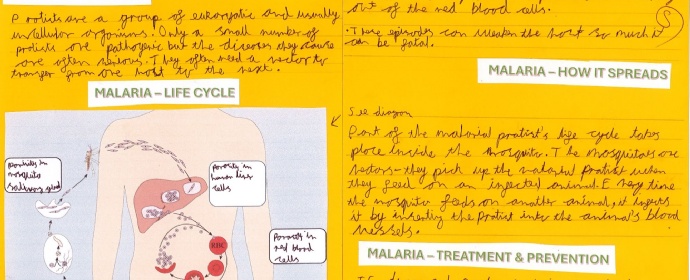 Protists are a group of eukaryotic and usually
unicellular organisms. Only a small number of
protists are pathogenic but the diseases they cause
are often serious. They often need a vector to
transfer from one host to the next.
MALARIA – LIFE CYCLE
Parasites in
mosquito
salivary gland
Parasites in
human liver
cells
Parasites in
red blood
cells
RBC
out of the red blood cells.
• These episodes can weaken the host so much it
can be fatal.
MALARIA – HOW IT SPREADS
See diagram
Part of the malarial protist's life cycle takes
place inside the mosquito. The mosquitoes are
vectors – they pick up the malarial protist when
they feed on an infected animal. Every time
the mosquito feeds on another animal, it infects
it by inserting the protist into the animal's blood
vessels.
MALARIA – TREATMENT & PREVENTION